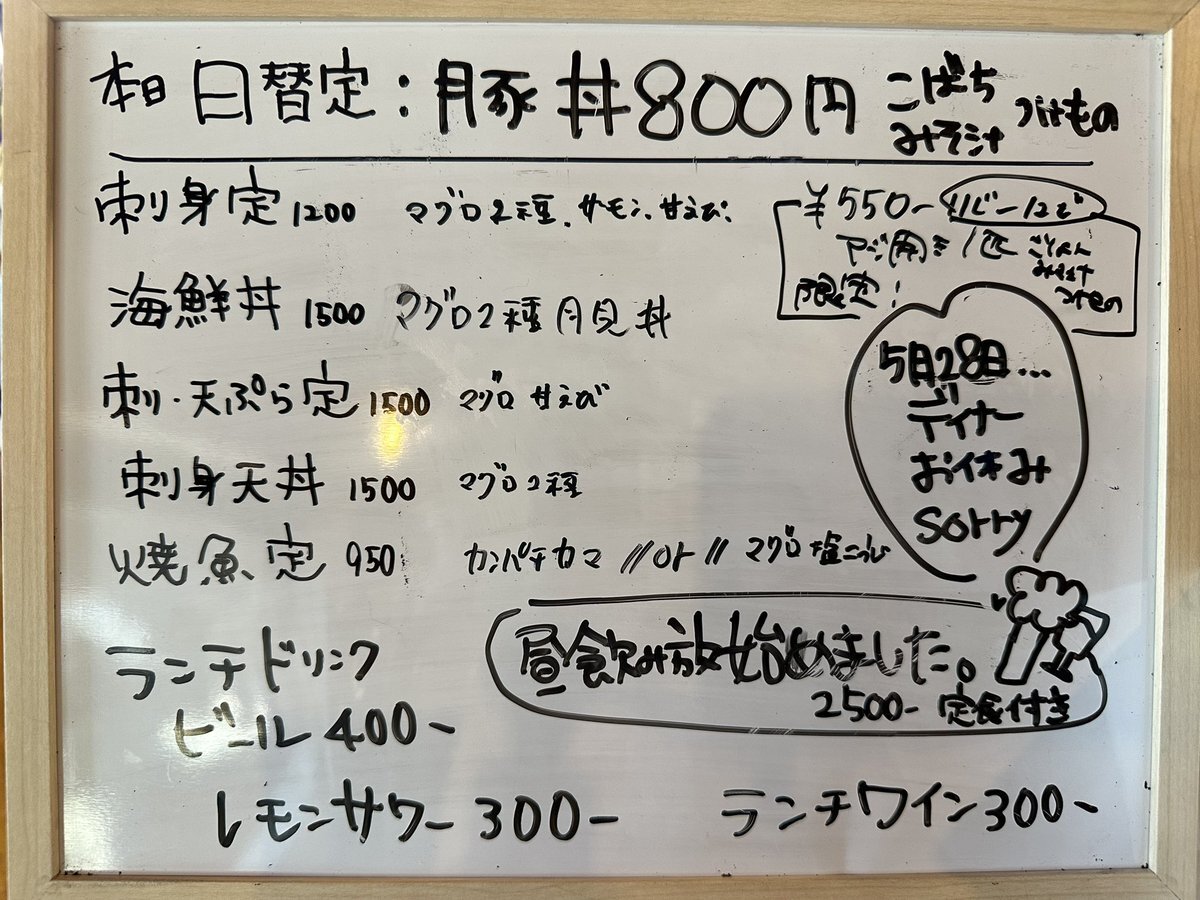 本日 日替定：豚丼800円 こばち みそ汁 つけもの
刺身定 1200 マグロ2種、サーモン、甘えび、
¥550-
アジ(開き)1匹 ごはん
みそ汁
つけもの
限定！
海鮮丼 1500 マグロ2種 月見丼
刺・天ぷら定 1500 マグロ 甘えび
刺身天丼 1500 マグロ2種
焼魚定 950 カンパチカマ 〃or〃 マグロ塩こうじ
5月28日...
ディナー
お休み
sorry
昼飲み放始めました。
2500- 定食付き
ランチドリンク
ビール 400-
レモンサワー 300-
ランチワイン300-